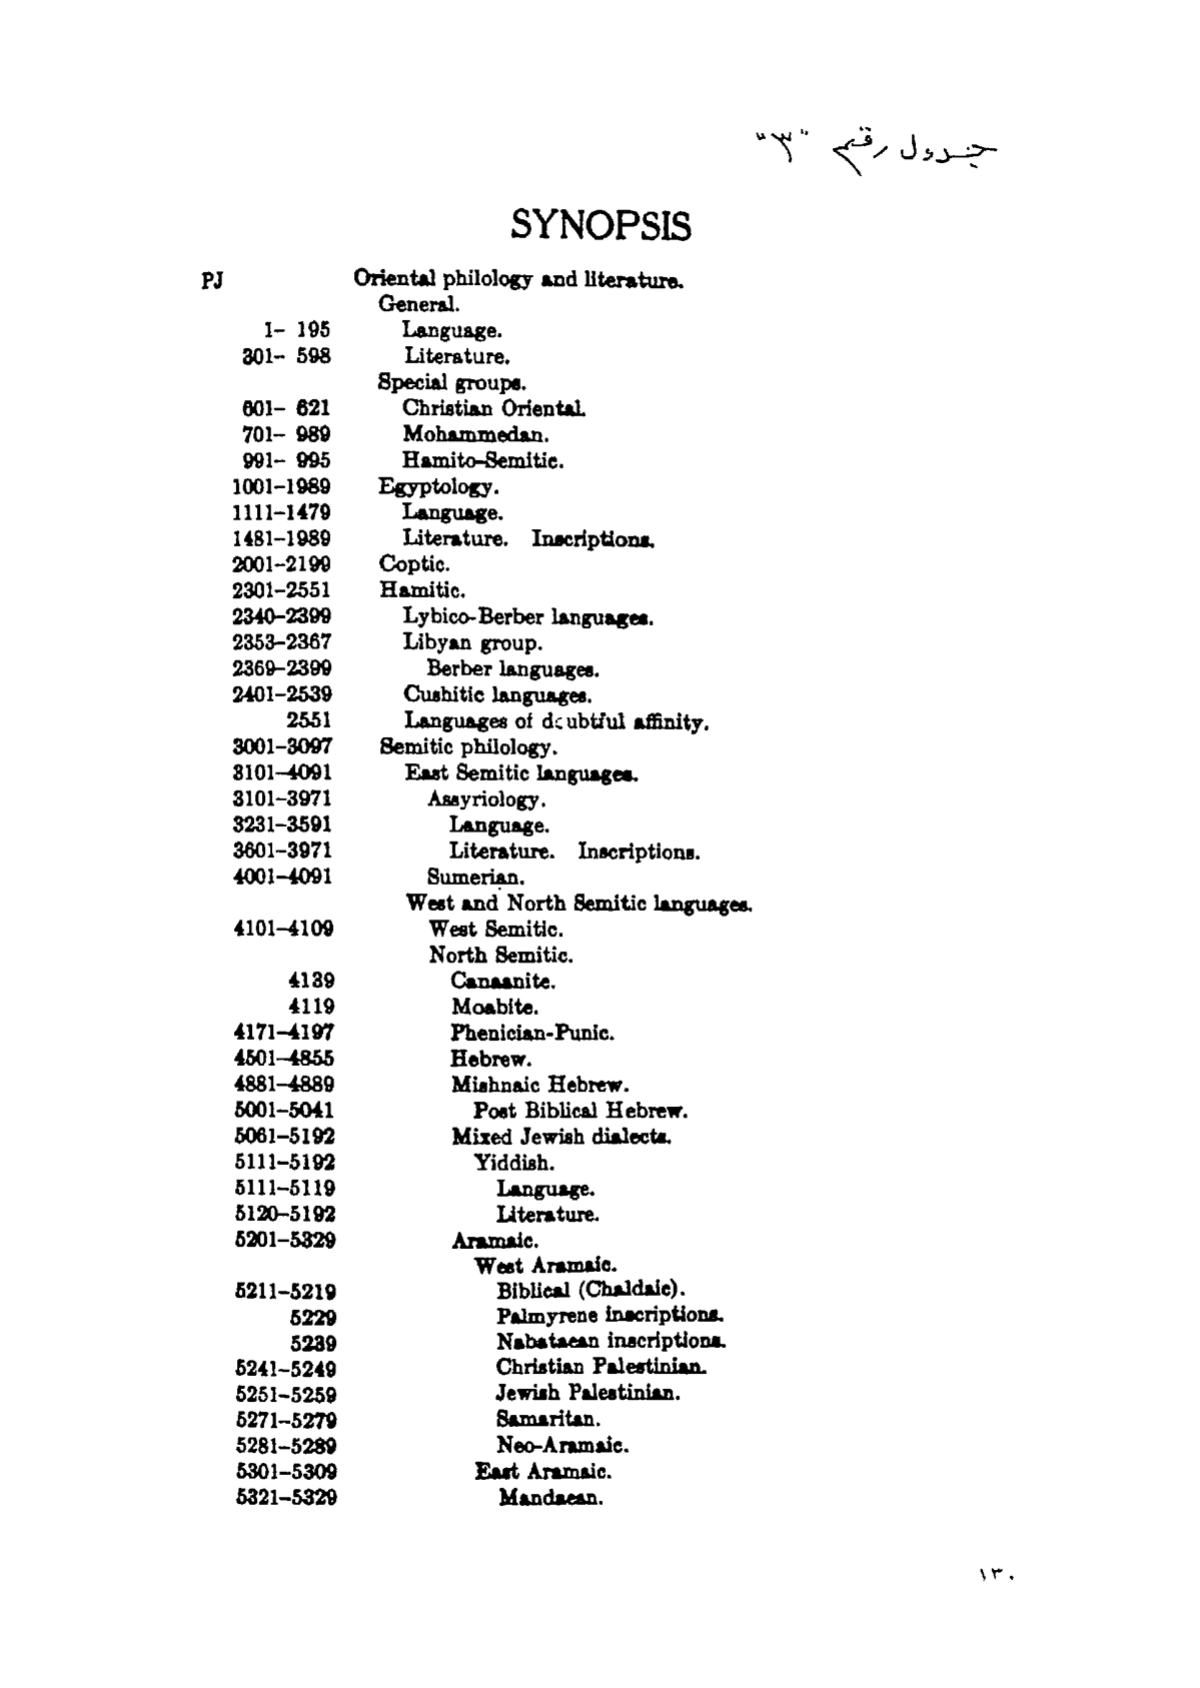 جدول رقم "٣"
SYNOPSIS
PJ Oriental philology and literature.
General.
1– 195 Language.
301– 598 Literature.
Special groups.
601– 621 Christian Oriental.
701– 989 Mohammedan.
991– 995 Hamito-Semitic.
1001–1989 Egyptology.
1111–1479 Language.
1481–1989 Literature. Inscriptions.
2001–2199 Coptic.
2301–2551 Hamitic.
2340–2399 Lybico-Berber languages.
2353–2367 Libyan group.
2369–2399 Berber languages.
2401–2539 Cushitic languages.
2551 Languages of doubtful affinity.
3001–3097 Semitic philology.
3101–4091 East Semitic languages.
3101–3971 Assyriology.
3231–3591 Language.
3601–3971 Literature. Inscriptions.
4001–4091 Sumerian.
West and North Semitic languages.
4101–4109 West Semitic.
North Semitic.
4139 Canaanite.
4119 Moabite.
4171–4197 Phenician-Punic.
4501–4855 Hebrew.
4881–4889 Mishnaic Hebrew.
5001–5041 Post Biblical Hebrew.
5061–5192 Mixed Jewish dialects.
5111–5192 Yiddish.
5111–5119 Language.
5120–5192 Literature.
5201–5329 Aramaic.
West Aramaic.
5211–5219 Biblical (Chaldaic).
5229 Palmyrene inscriptions.
5239 Nabataean inscriptions.
5241–5249 Christian Palestinian.
5251–5259 Jewish Palestinian.
5271–5279 Samaritan.
5281–5289 Neo-Aramaic.
5301–5309 East Aramaic.
5321–5329 Mandaean.
١٣٠